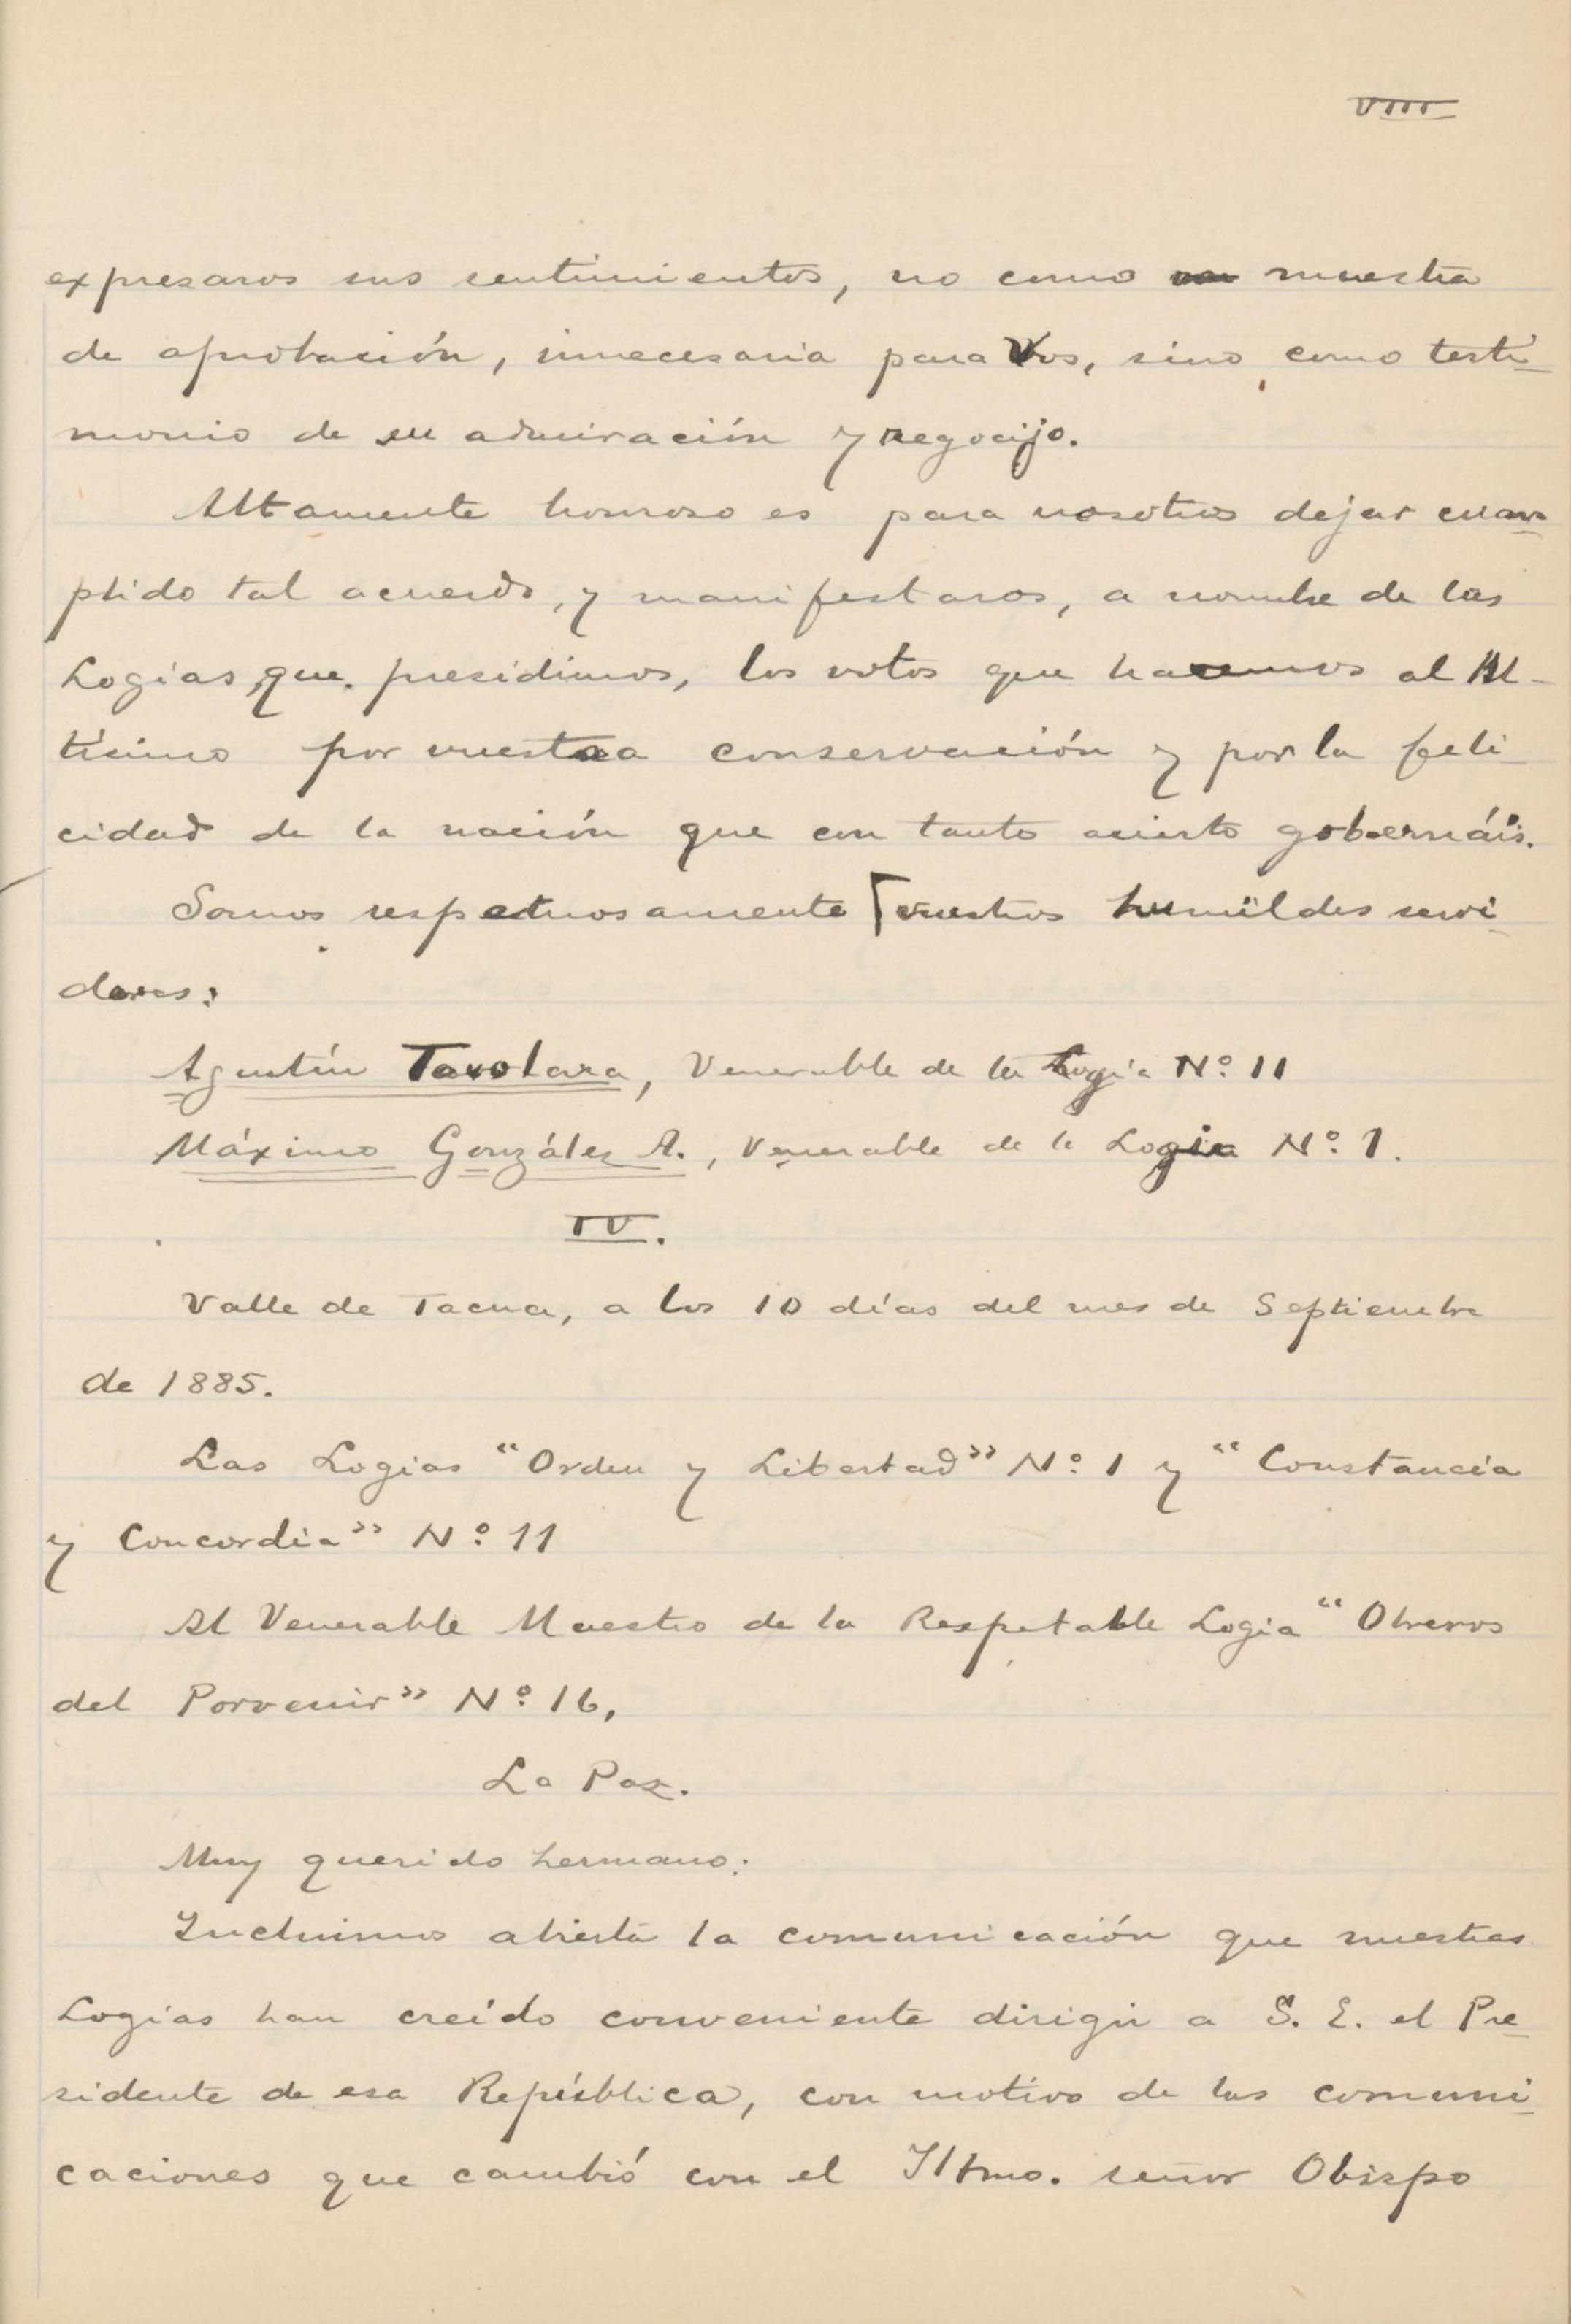 VIII
expresaros sus sentimientos, no como muestra
de aprobación, innecesaria para Vos, sino como testi-
monio de su admiración y regocijo.
Altamente honroso es para nosotros dejar cum-
plido tal acuerdo, y manifestaros, a nombre de las
Logias que presidimos, los votos que hacemos al Al-
tísimo por vuestra conservación y por la feli-
cidad de la nación que con tanto acierto gobernáis.
Somos respetuosamente [vuestros humildes servi-
dores:
Agustín Tavolara, Venerable de la Logia Nº 11
Máximo González A., Venerable de la Logia Nº 1.
IV.
Valle de Tacna, a los 10 días del mes de Septiembre
de 1885.
Las Logias "Orden y Libertad" Nº 1 y "Constancia
y Concordia" Nº 11
Al Venerable Maestro de la Respetable Logia "Obreros
del Porvenir" Nº 16,
La Paz.
Muy querido hermano:
Incluimos abierta la comunicación que nuestras
Logias han creído conveniente dirigir a S. E. el Pre-
sidente de esa República, con motivo de las comuni-
caciones que cambió con el Iltmo. señor Obispo